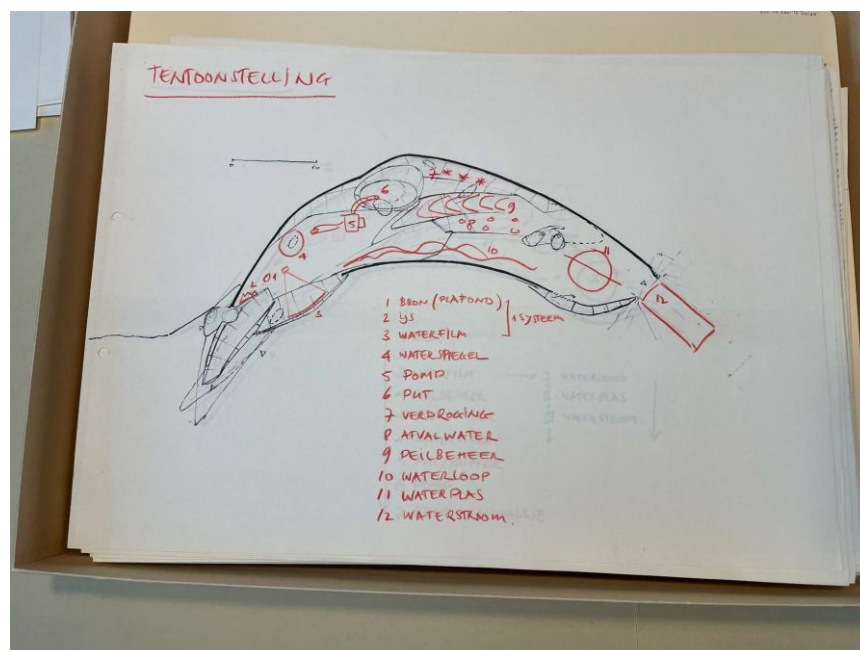 TENTOONSTELLING
1 BRON (PLAFOND)
2 IJS
1 SYSTEEM
3 WATERFILM
4 WATERSPIEGEL
5 POMP
6 PUT
7 VERDROGING
8 AFVALWATER
9 PEILBEHEER
10 WATERLOOP
11 WATERPLAS
12 WATERSTROOM.
7
6
5
9
8
4
10
11
1
2
3
12